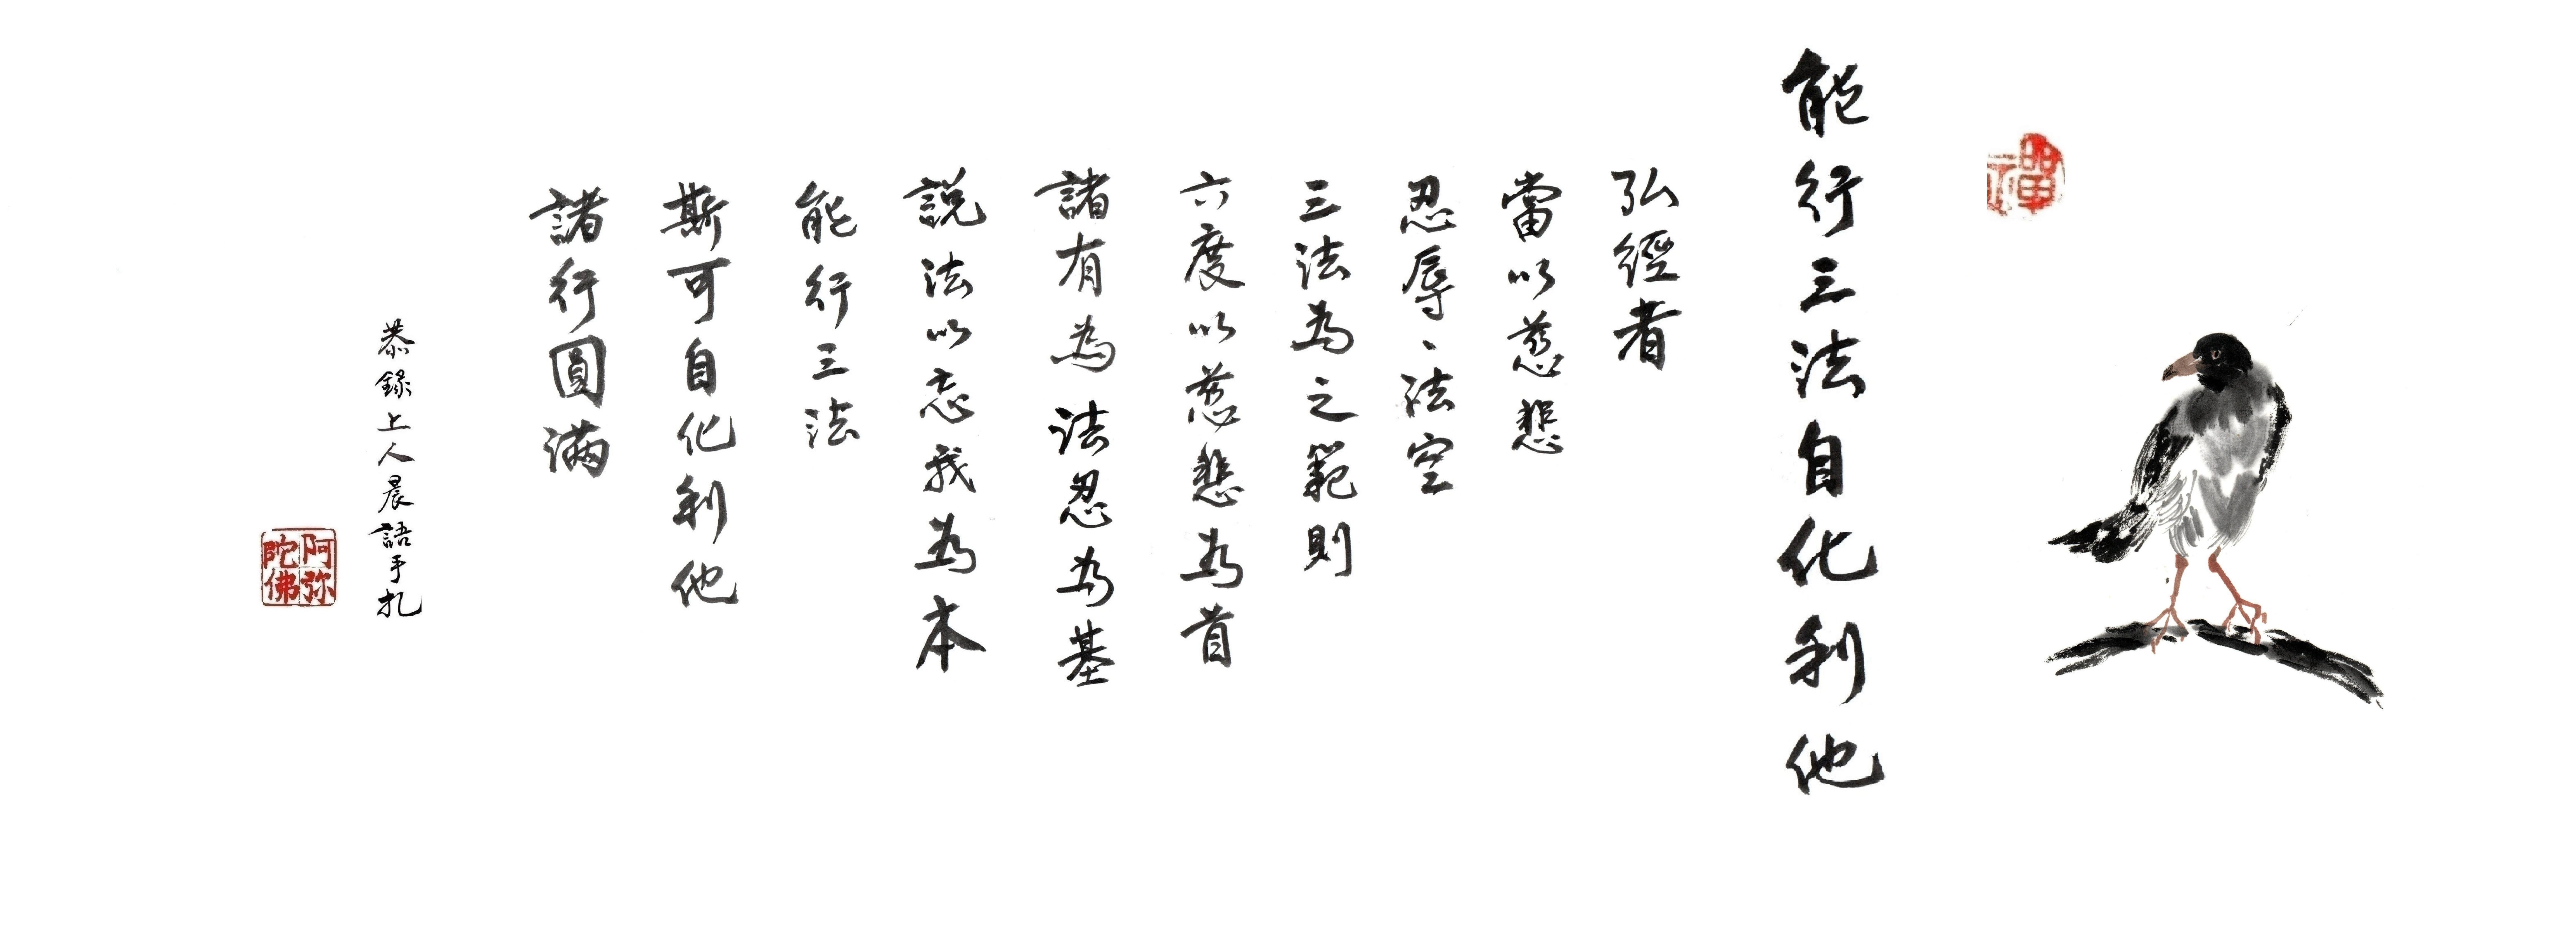 禪
能行三法自化利他
弘經者
當以慈悲
忍辱、法空
三法為之範則
六度以慈悲為首
諸有為法忍為基
說法以忘我為本
能行三法
斯可自化利他
諸行圓滿
恭錄上人晨語手扎
阿弥
陀佛